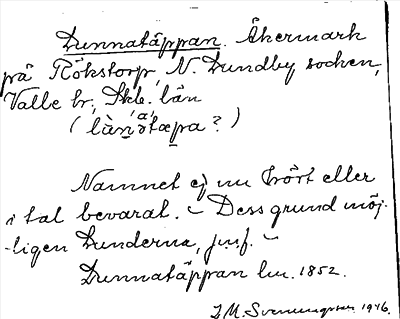 Dunnatäppan. Åkermark
på Rökstorp, N. Lundby socken,
Valle hr, Skb. län
( ? )
Namnet ej nu hört eller
i tal bevarat. – Dess grund möj-
-ligen Dunderna, jmf. –
Dunnatäppan lm. 1852.
1946.